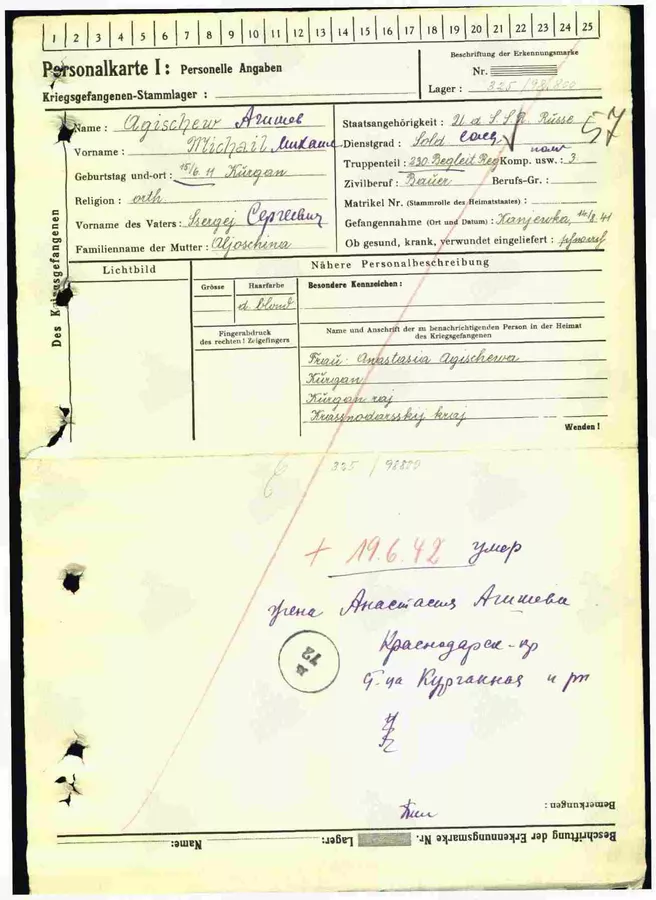 1 2 3 4 5 6 7 8 9 10 11 12 13 14 15 16 17 18 19 20 21 22 23 24 25
Personalkarte I: Personelle Angaben
Kriegsgefangenen-Stammlager :
Beschriftung der Erkennungsmarke
Nr.
Lager : 325 / 98800
Des Kriegsgefangenen
Name : Agischew Агишев
Vorname : Michail
Geburtstag und-ort : 15/6. 11 Kurgan
Religion : orth
Vorname des Vaters : Ssergej Сергеевич
Familienname der Mutter : Aljoschina
Staatsangehörigkeit : U d S.S.R. Russe
57
Dienstgrad : Sold солд
Truppenteil : 230 Begleit Reg Komp. usw. : 3
полк
Zivilberuf : Bauer Berufs-Gr. :
Matrikel Nr. (Stammrolle des Heimatstaates) :
Gefangennahme (Ort und Datum) : Kanjewka, 14/8. 41
Ob gesund, krank, verwundet eingeliefert :
Lichtbild
Nähere Personalbeschreibung
Grösse
Haarfarbe
d. blond
Besondere Kennzeichen:
Fingerabdruck
des rechten ! Zeigefingers
Name und Anschrift der zu benachrichtigenden Person in der Heimat
des Kriegsgefangenen
Frau Anastasia Agischewa
Kurgan
Kurgan raj
Krassnodarssky kraj
Wenden !
325 / 98800
+ 19.6.42 умер
жена Анастасия Агишева
Краснодарск-кр
ст-ца Курганная
72
Bemerkungen :
Beschriftung der Erkennungsmarke Nr.
Lager:
Name: